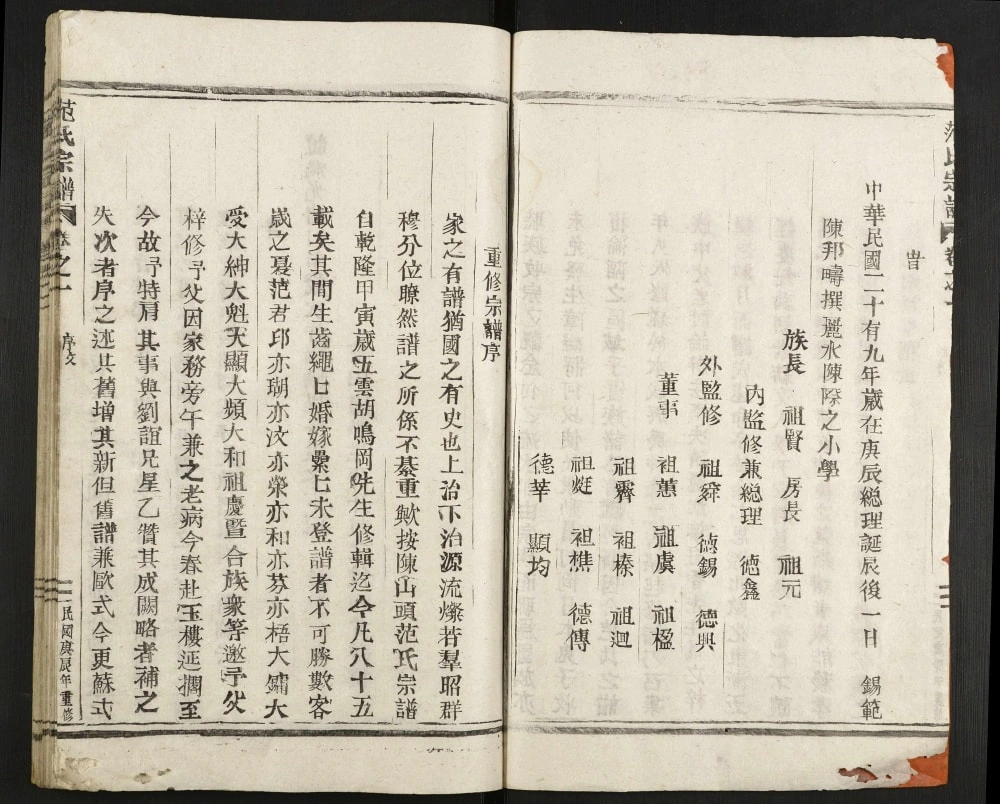 中華民國二十有九年歲在庚辰總理誕辰後一日 錫範
陳邦疇撰麗水陳際之小學
族長 祖賢 房長 祖元
內監修兼總理 德鑫
外監修 祖舜 德錫 德興
董事 祖蕙 祖虞 祖楹
祖霽 祖榛 祖迴
祖烶 祖樵 德傳
德華 顯均
重修宗譜序
家之有譜猶國之有史也上治下治源流燦若羣昭群
穆分位瞭然譜之所係不綦重歟按陳山頭范氏宗譜
自乾隆甲寅歲五雲胡鳴岡先生修輯迄今凡八十五
載矣其間生齒繩㠯婚嫁纍㠯未登譜者不可勝數客
歲之夏范君邱亦瑚亦汶亦榮亦和亦芬亦梧大鏞大
愛大紳大魁大顯大頻大和祖慶暨合族衆等邀予父
梓修予父因家務旁午兼之老病今春赴玉樓延擱至
今故予特肩其事與劉誼兄星乙贊其成闕略者補之
失次者序之述其舊增其新但舊譜兼歐式今更蘇式
范氏宗譜 卷之一 序文 民國庚辰年重修